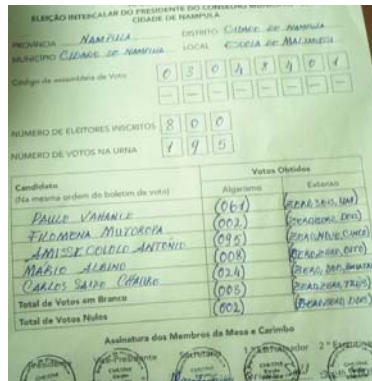 ELEIÇÃO INTERCALAR DO PRESIDENTE DO CONSELHO
CIDADE DE NAMPULA
PROVÍNCIA NAMPULA DISTRITO CIDADE DE NAMPULA
MUNICÍPIO CIDADE DE NAMPULA LOCAL ESCOLA DE
Código da assembleia de Voto 0 3 0 4 8 4 0 1
NÚMERO DE ELEITORES INSCRITOS 8 0 0
NÚMERO DE VOTOS NA URNA 1 9 5
Votos Obtidos
Candidato
(Na mesma ordem do boletim de voto) Algarismo Extenso
PAULO VAHANLE (061) (ZERO, SEIS, UM)
FILOMENA MUTOROPA (002) (ZERO, ZERO, DOIS)
AMISSE COLOLO ANTÓNIO (095) (ZERO, NOVE, CINCO)
MÁRIO ALBINO (008) (ZERO, ZERO, OITO)
CARLOS SAIDE CHAURE (024) (ZERO, DOIS, QUATRO)
Total de Votos em Branco (003) (ZERO, ZERO, TRÊS)
Total de Votos Nulos (002) (ZERO, ZERO, DOIS)
Assinatura dos Membros da Mesa e Carimbo
Presidente Vice-Presidente Secretário 1º Escrutinador 2º Escrutinador